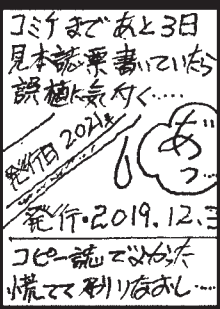 コミケまであと3日
見本誌票書いていたら
誤植に気付く……
発行日 2021年
あっ…
発行・2019.12.三
コピー誌でよかった
慌てて刷りなおし……